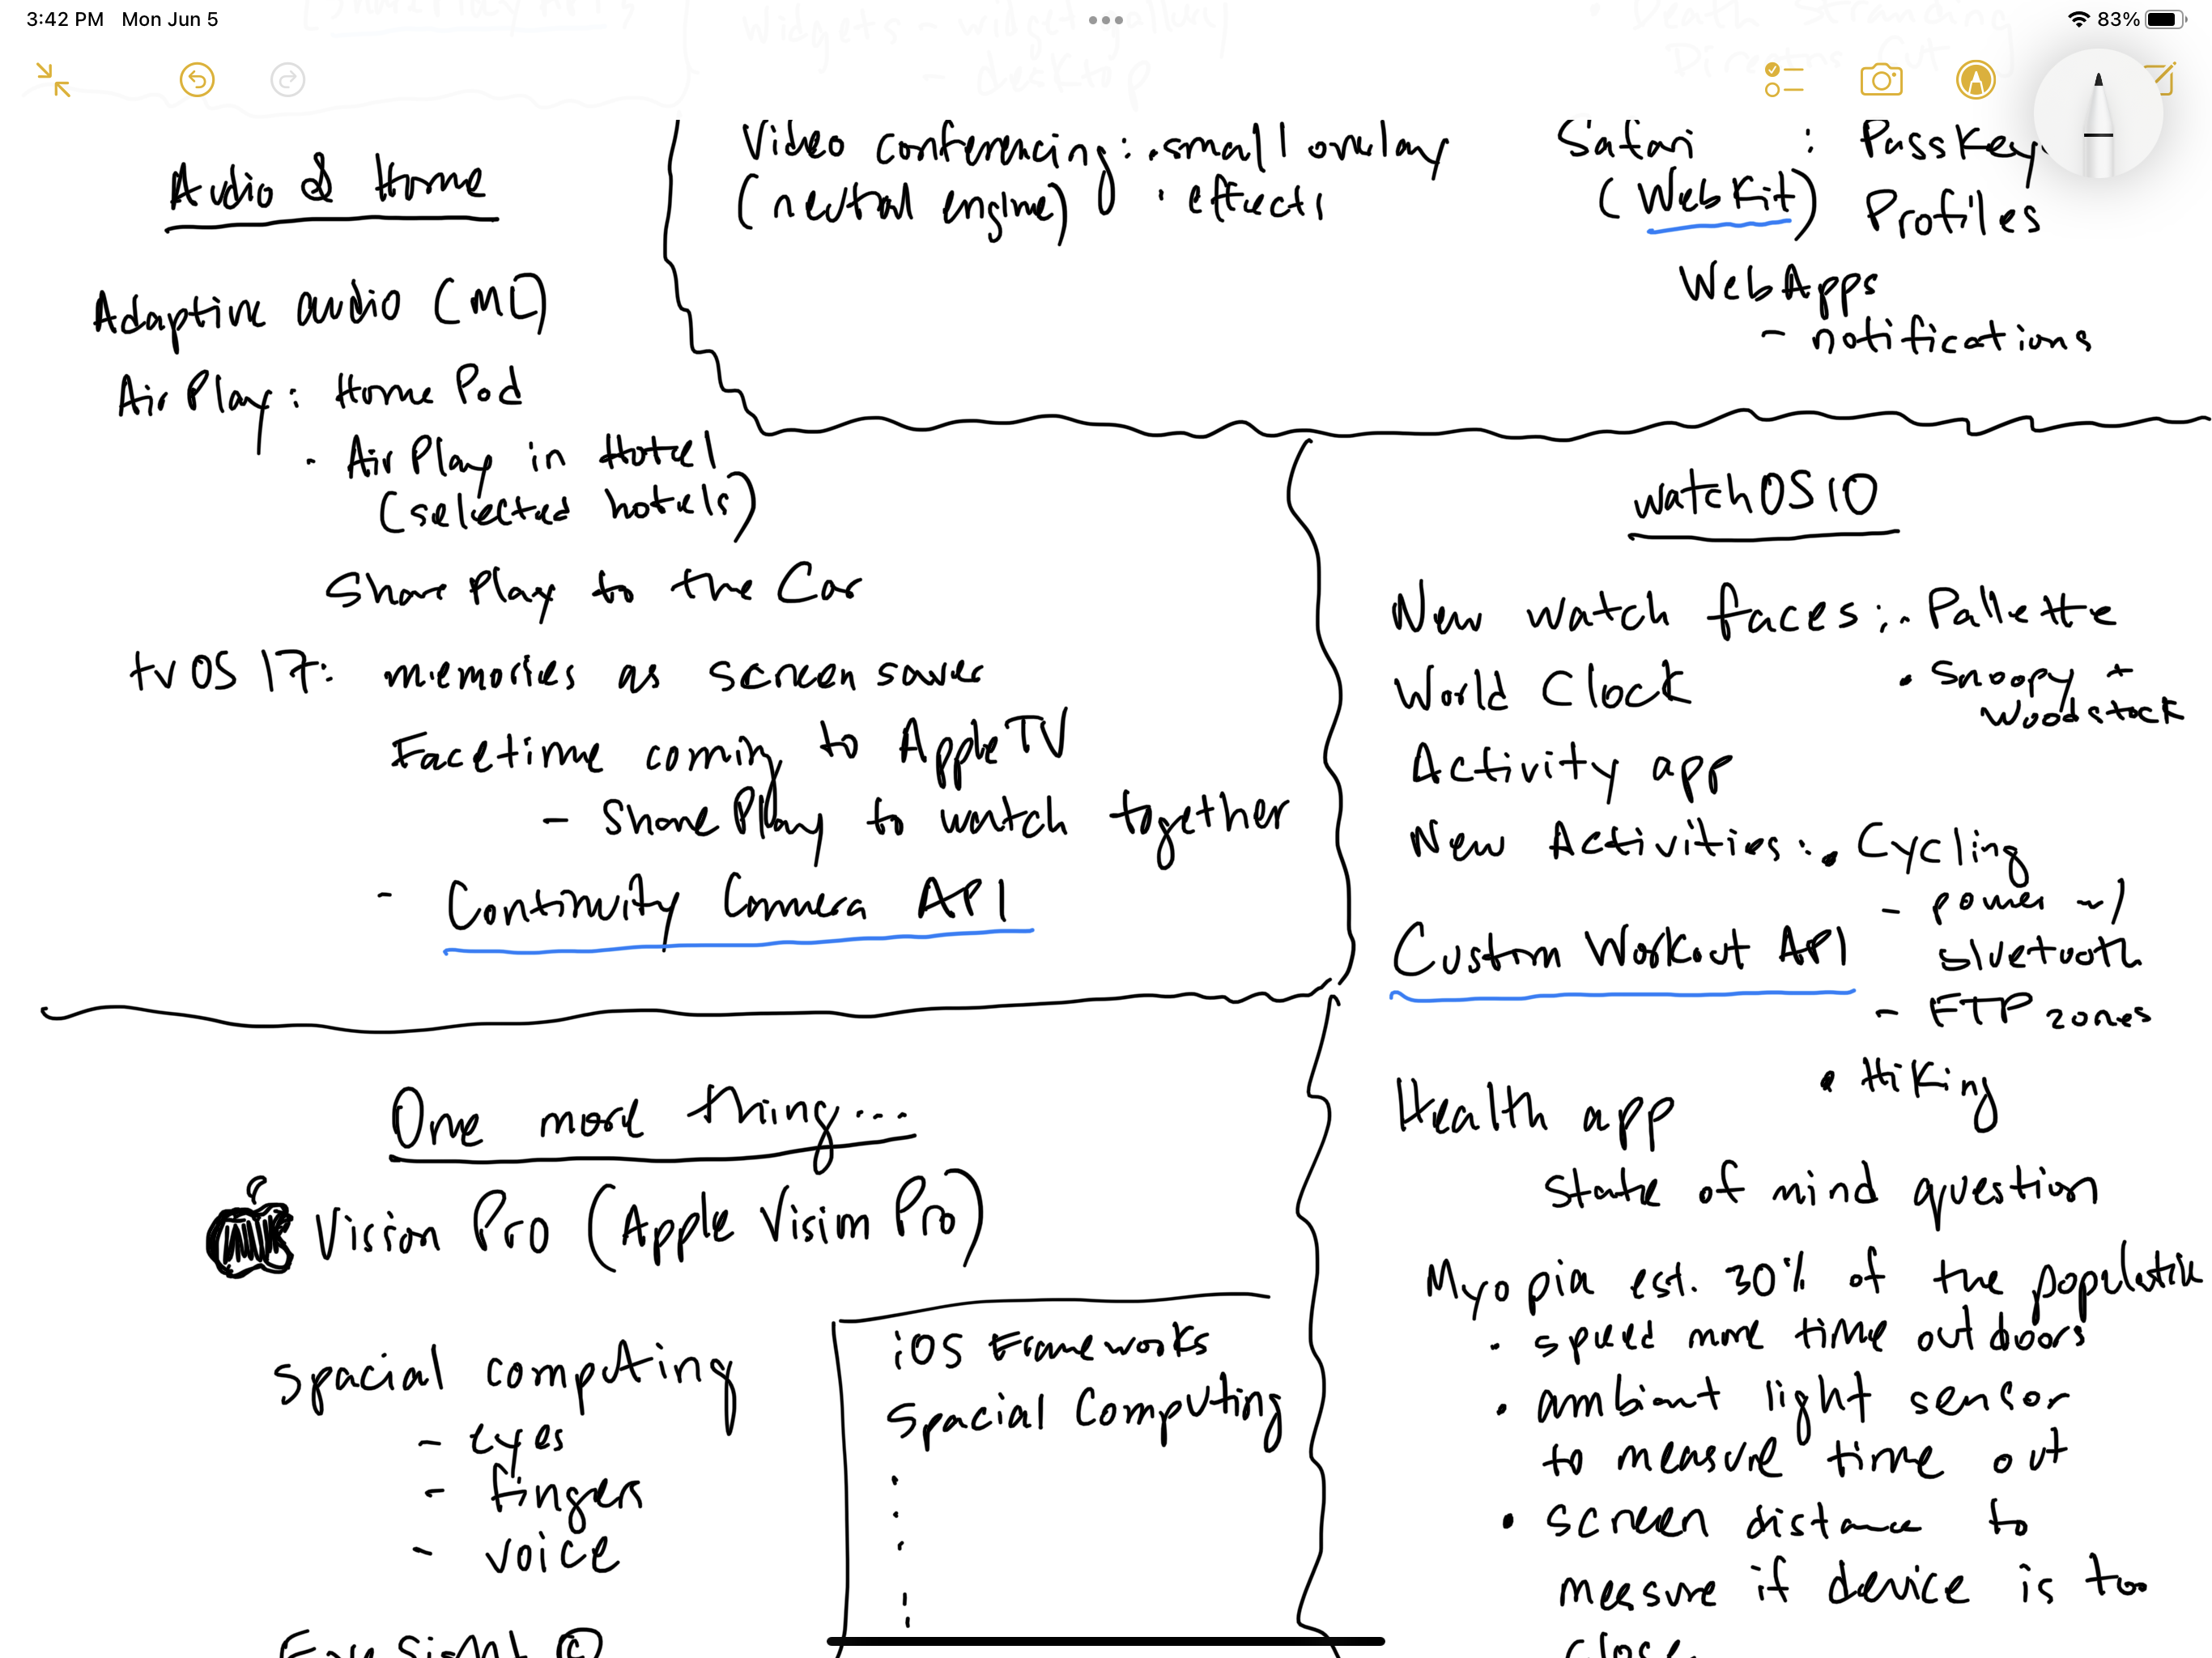 3:42 PM Mon Jun 5
83%
Widgets - widget gallery
- desktop
Death Stranding
Directors Cut
Video conferencing: · small overlay
(neutral engine) · effects
Safari : PassKey
(WebKit) Profiles
WebApps
- notifications
Audio & Home
Adaptive audio (ML)
AirPlay: Home Pod
· AirPlay in Hotel
(selected hotels)
Share Play to the Car
tvOS 17: memories as screen saver
Facetime coming to AppleTV
- SharePlay to watch together
- Continuity Camera API
One more thing...
Vision Pro (Apple Vision Pro)
Spacial computing
- eyes
- fingers
- voice
Eye Sight ©
iOS Frameworks
Spacial Computing
watchOS 10
New watch faces: · Pallette
World Clock · Snoopy +
Woodstock
Activity app
New Activities: · Cycling
- power w/
bluetooth
Custom Workout API
- FTP zones
· Hiking
Health app
State of mind question
Myopia est. 30% of the population
· speed more time outdoors
· ambiant light sensor
to measure time out
· screen distance to
measure if device is too
close